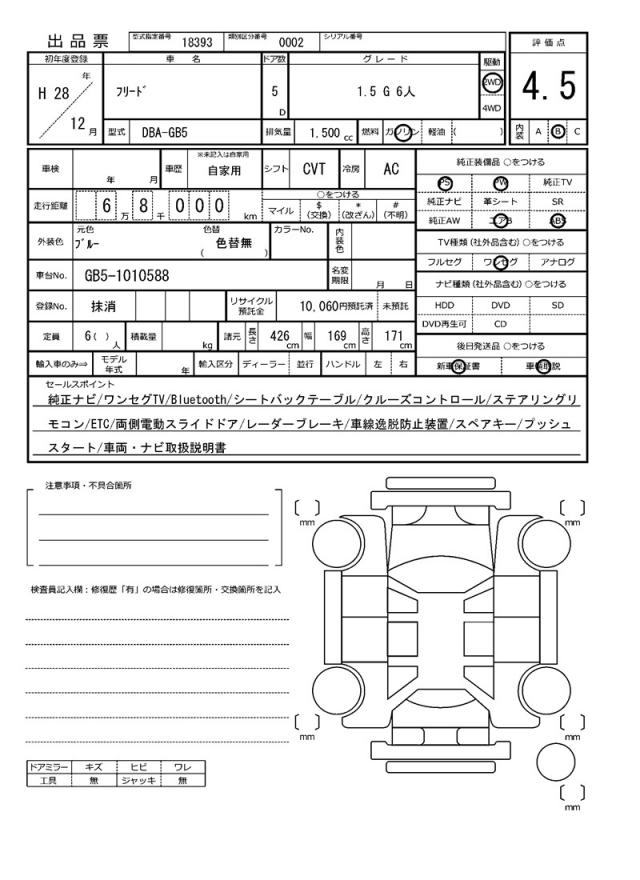 出品票
型式指定番号 18393 類別区分番号 0002 シリアル番号
初年度登録 車名 ドア数 グレード 駆動 評価点
H 28 年 12 月 フリード 5 D 1.5 G 6人 2WD 4WD 4.5
型式 DBA-GB5 排気量 1.500 cc 燃料 ガソリン 軽油 ( ) 内装 A B C
車検 年 月 車歴 ※未記入は自家用 自家用 シフト CVT 冷房 AC 純正装備品 ○をつける
PS PW 純正TV
走行距離 6 万 8 千 0 0 0 km ○をつける マイル $(交換) *(改ざん) #(不明) 純正ナビ 革シート SR
純正AW エアB ABS
外装色 元色 ブルー 色替 ( 色替無 ) カラーNo. 内装色 TV種類(社外品含む) ○をつける
フルセグ ワンセグ アナログ
車台No. GB5-1010588 名変期限 月 日 ナビ種類(社外品含む) ○をつける
登録No. 抹消 リサイクル預託金 10,060円預託済 未預託 HDD DVD SD
DVD再生可 CD
定員 6( )人 積載量 kg 諸元 長さ 426 cm 幅 169 cm 高さ 171 cm 後日発送品 ○をつける
輸入車のみ⇒ モデル年式 年 輸入区分 ディーラー 並行 ハンドル 左 右 新車保証書 車輌取説
セールスポイント
純正ナビ/ワンセグTV/Bluetooth/シートバックテーブル/クルーズコントロール/ステアリングリ
モコン/ETC/両側電動スライドドア/レーダーブレーキ/車線逸脱防止装置/スペアキー/プッシュ
スタート/車両・ナビ取扱説明書
注意事項・不具合箇所
mm mm
検査員記入欄:修復歴「有」の場合は修復箇所・交換箇所を記入
mm mm
ドアミラー キズ ヒビ ワレ
工具 無 ジャッキ 無
mm